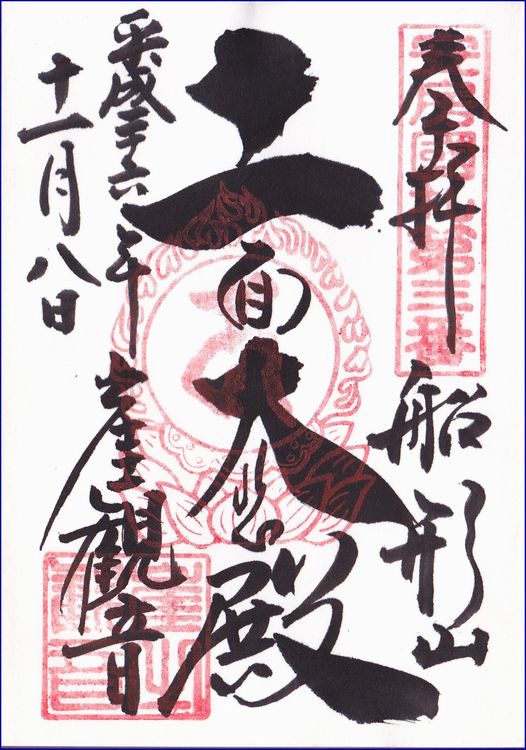 奉拝
船形山
十一面大悲殿
平成二十六年
十一月八日
崖観音